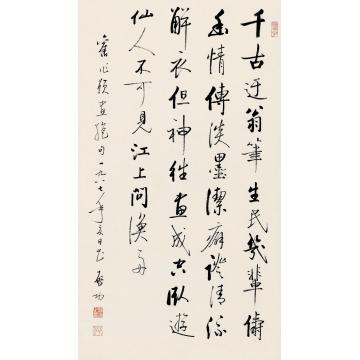 千古迂翁筆生民幾輩儔
幽情傳淡墨潔癖證清流
解衣但神往畫成臥遊
仙人不可見江上問漁舟
舊作題畫絕句一九八七年夏日 啟功